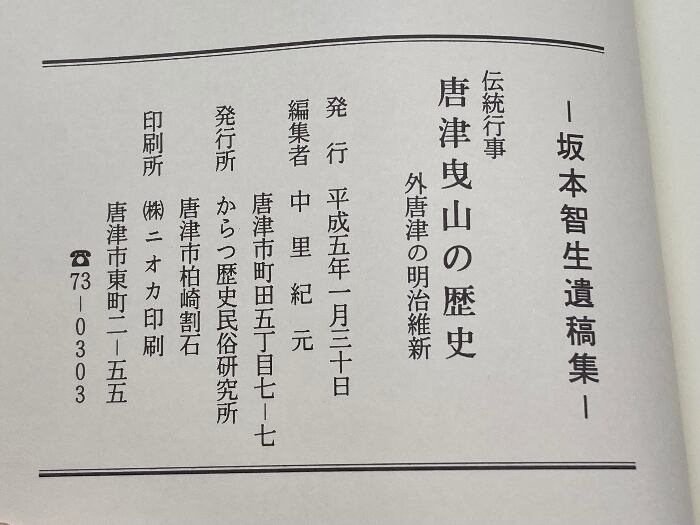 －坂本智生遺稿集－
伝統行事
唐津曳山の歴史
外唐津の明治維新
発　行　平成五年一月三十日
編集者　中　里　紀　元
唐津市町田五丁目七－七
発行所　からつ歴史民俗研究所
唐津市柏崎割石
印刷所　㈱ニオカ印刷
唐津市東町二－五五
☎73－0303